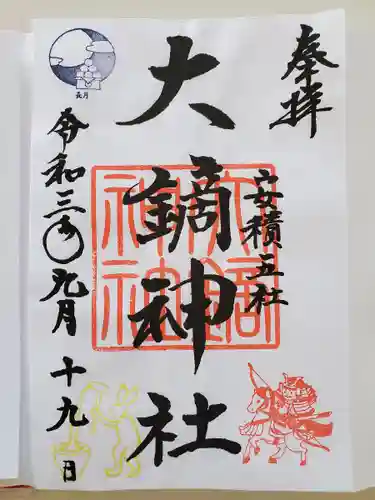 奉拝
安積五社
大鏑神社
長月
令和三年九月十九日